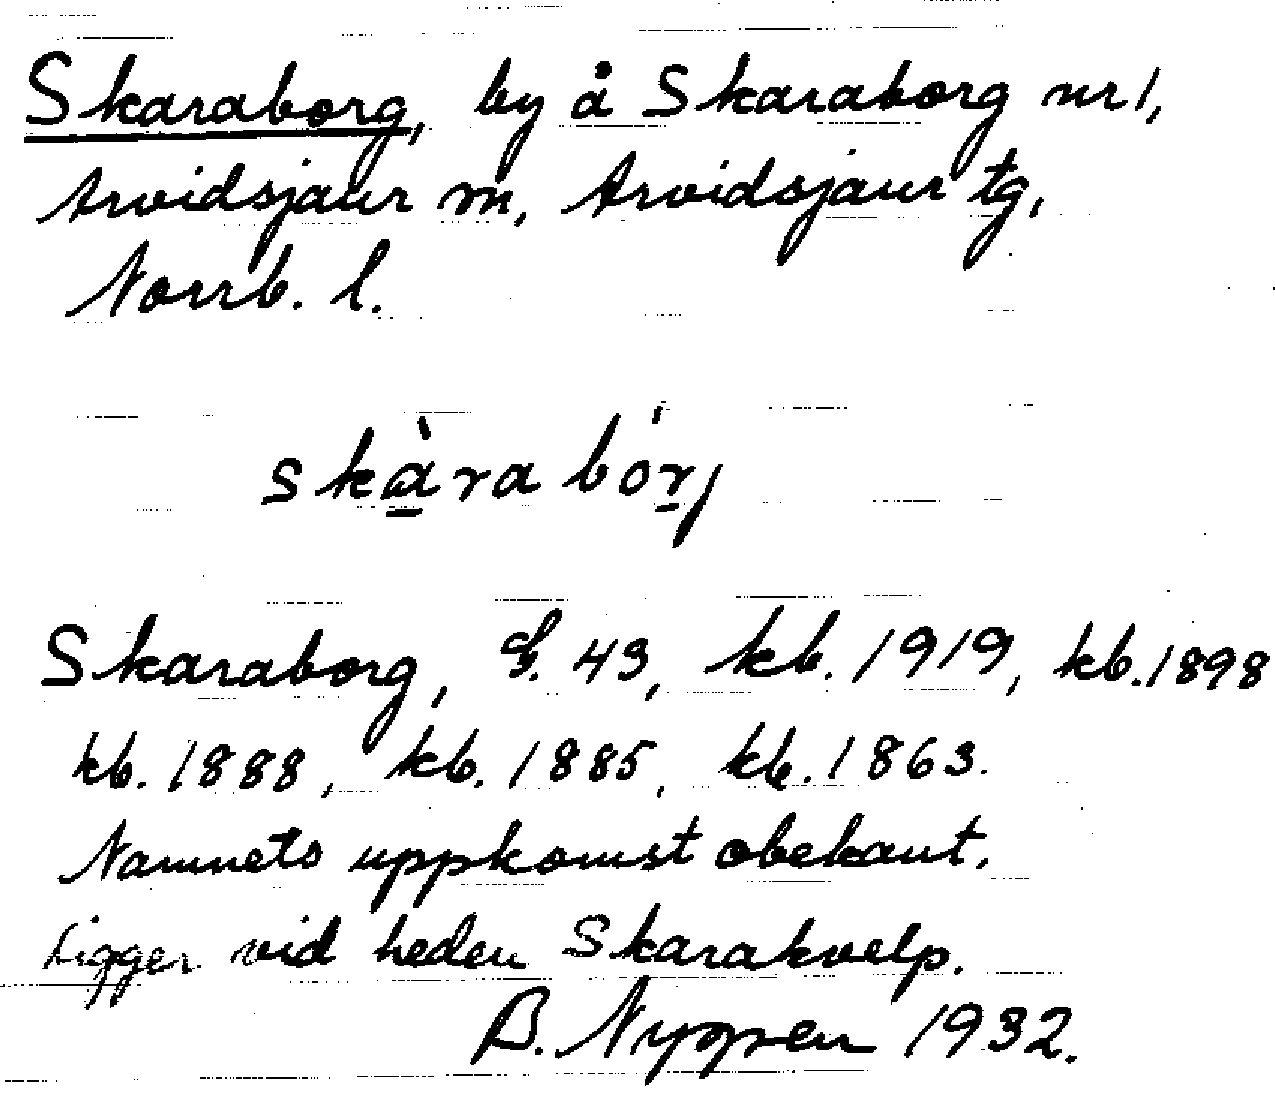 Skaraborg, by å Skaraborg nr 1,
Arvidsjaur sn, Arvidsjaur tg,
Norrb. l.
skàra bórj
Skaraborg, G. 43, kb. 1919, kb. 1898
kb. 1888, kb. 1885, kb. 1863.
Namnets uppkomst obekant.
Ligger vid heden Skarakvelp.
B. Nygren 1932.